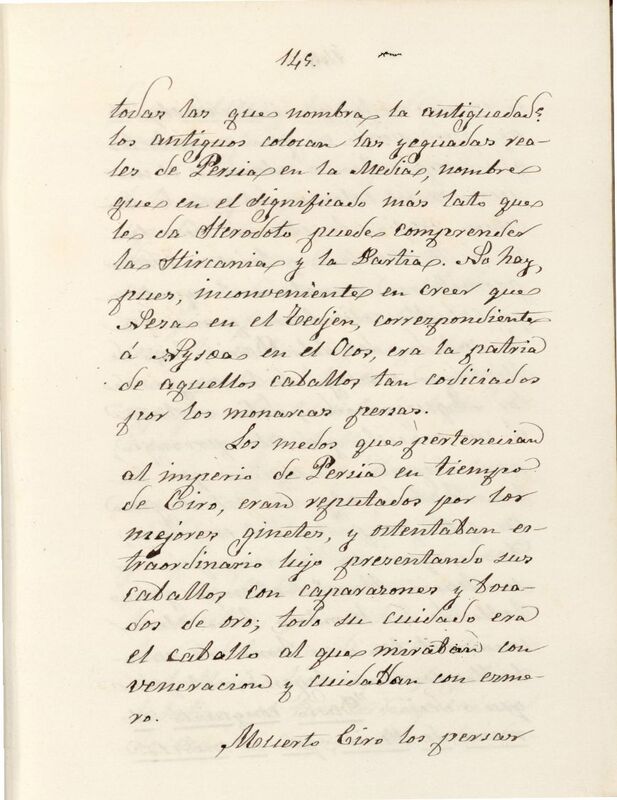 145.
todas las que nombra la antiguedad:
los antiguos colocan las yeguadas rea-
les de Persia en la Media, nombre
que en el significado más lato que
le da Herodoto puede comprender
la Hircania y la Partia. No hay,
pues, inconveniente en creer que
Neza en el Tedjen, correspondiente
á Nysoea en el Ocos, era la patria
de aquellos caballos tan codiciados
por los monarcas persas.
Los medos que pertenecian
al imperio de Persia en tiempo
de Ciro, eran reputados por los
mejores ginetes, y ostentaban es-
traordinario lujo presentando sus
caballos con caparazones y boca-
dos de oro; todo su cuidado era
el caballo al que miraban con
veneracion y cuidaban con esme-
ro.
Muerto Ciro los persas